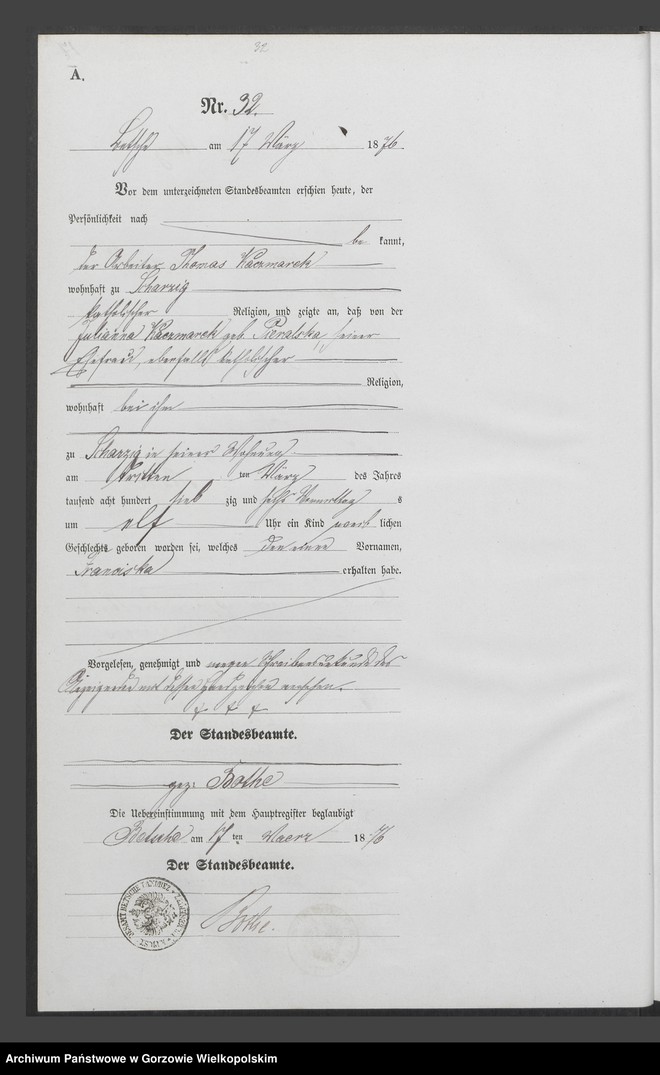 32
A.
Nr. 32.
Betsche am 17 März 1876.
Vor dem unterzeichneten Standesbeamten erschien heute, der
Persönlichkeit nach
be kannt,
der Arbeiter Thomas Kaczmarek
wohnhaft zu Scharzig
katholischer Religion, und zeigte an, daß von der
Julianna Kaczmarek geb. Pieralska seiner
Ehefrau, ebenfalls katholischer
Religion,
wohnhaft bei ihm
zu Scharzig in seiner Wohnung
am dritten ten März des Jahres
tausend acht hundert sieb zig und sechs Vormittag s
um elf Uhr ein Kind weib lichen
Geschlechts geboren worden sei, welches den einen Vornamen,
Franciska erhalten habe.
Vorgelesen, genehmigt und wegen Schreibensunkunde des
mit dessen Handzeichen versehen.
+ + +
Der Standesbeamte.
gez: Bothe
Die Uebereinstimmung mit dem Hauptregister beglaubigt
Betsche am 17 ten Maerz 1876
Der Standesbeamte.
Bothe.
Archiwum Państwowe w Gorzowie Wielkopolskim